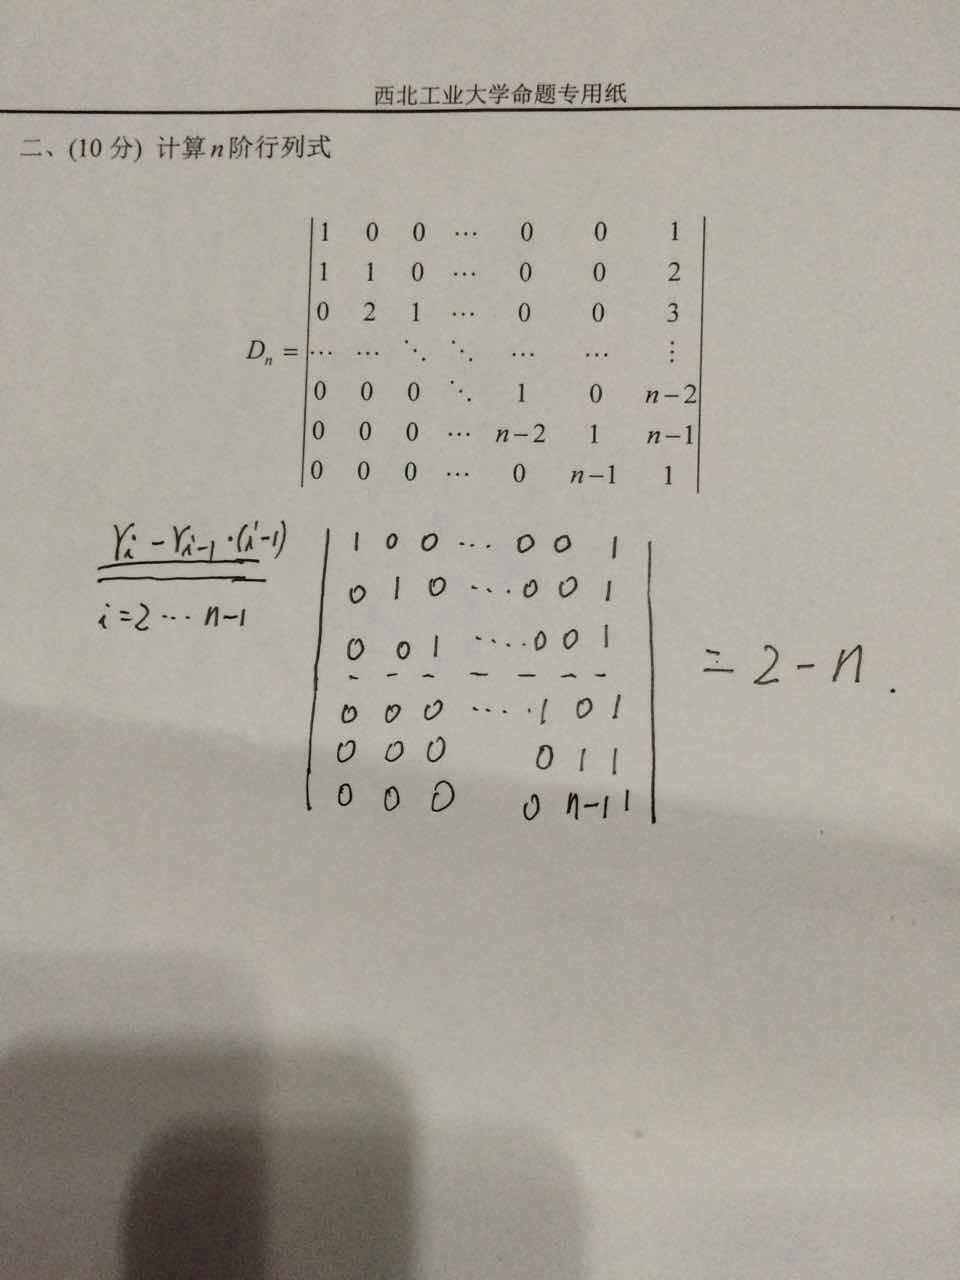 西北工业大学命题专用纸
二、(10 分) 计算 n 阶行列式
1 0 0 ⋯ 0 0 1
1 1 0 ⋯ 0 0 2
0 2 1 ⋯ 0 0 3
Dₙ = ⋯ ⋯ ⋱ ⋱ ⋯ ⋯ ⋮
0 0 0 ⋱ 1 0 n−2
0 0 0 ⋯ n−2 1 n−1
0 0 0 ⋯ 0 n−1 1
rᵢ − rᵢ₋₁ · (i−1)
i = 2 ⋯ n−1
1 0 0 ⋯ 0 0 1
0 1 0 ⋯ 0 0 1
0 0 1 ⋯ 0 0 1
0 0 0 ⋯ 1 0 1
0 0 0 0 1 1
0 0 0 0 n−1 1
= 2 − n .